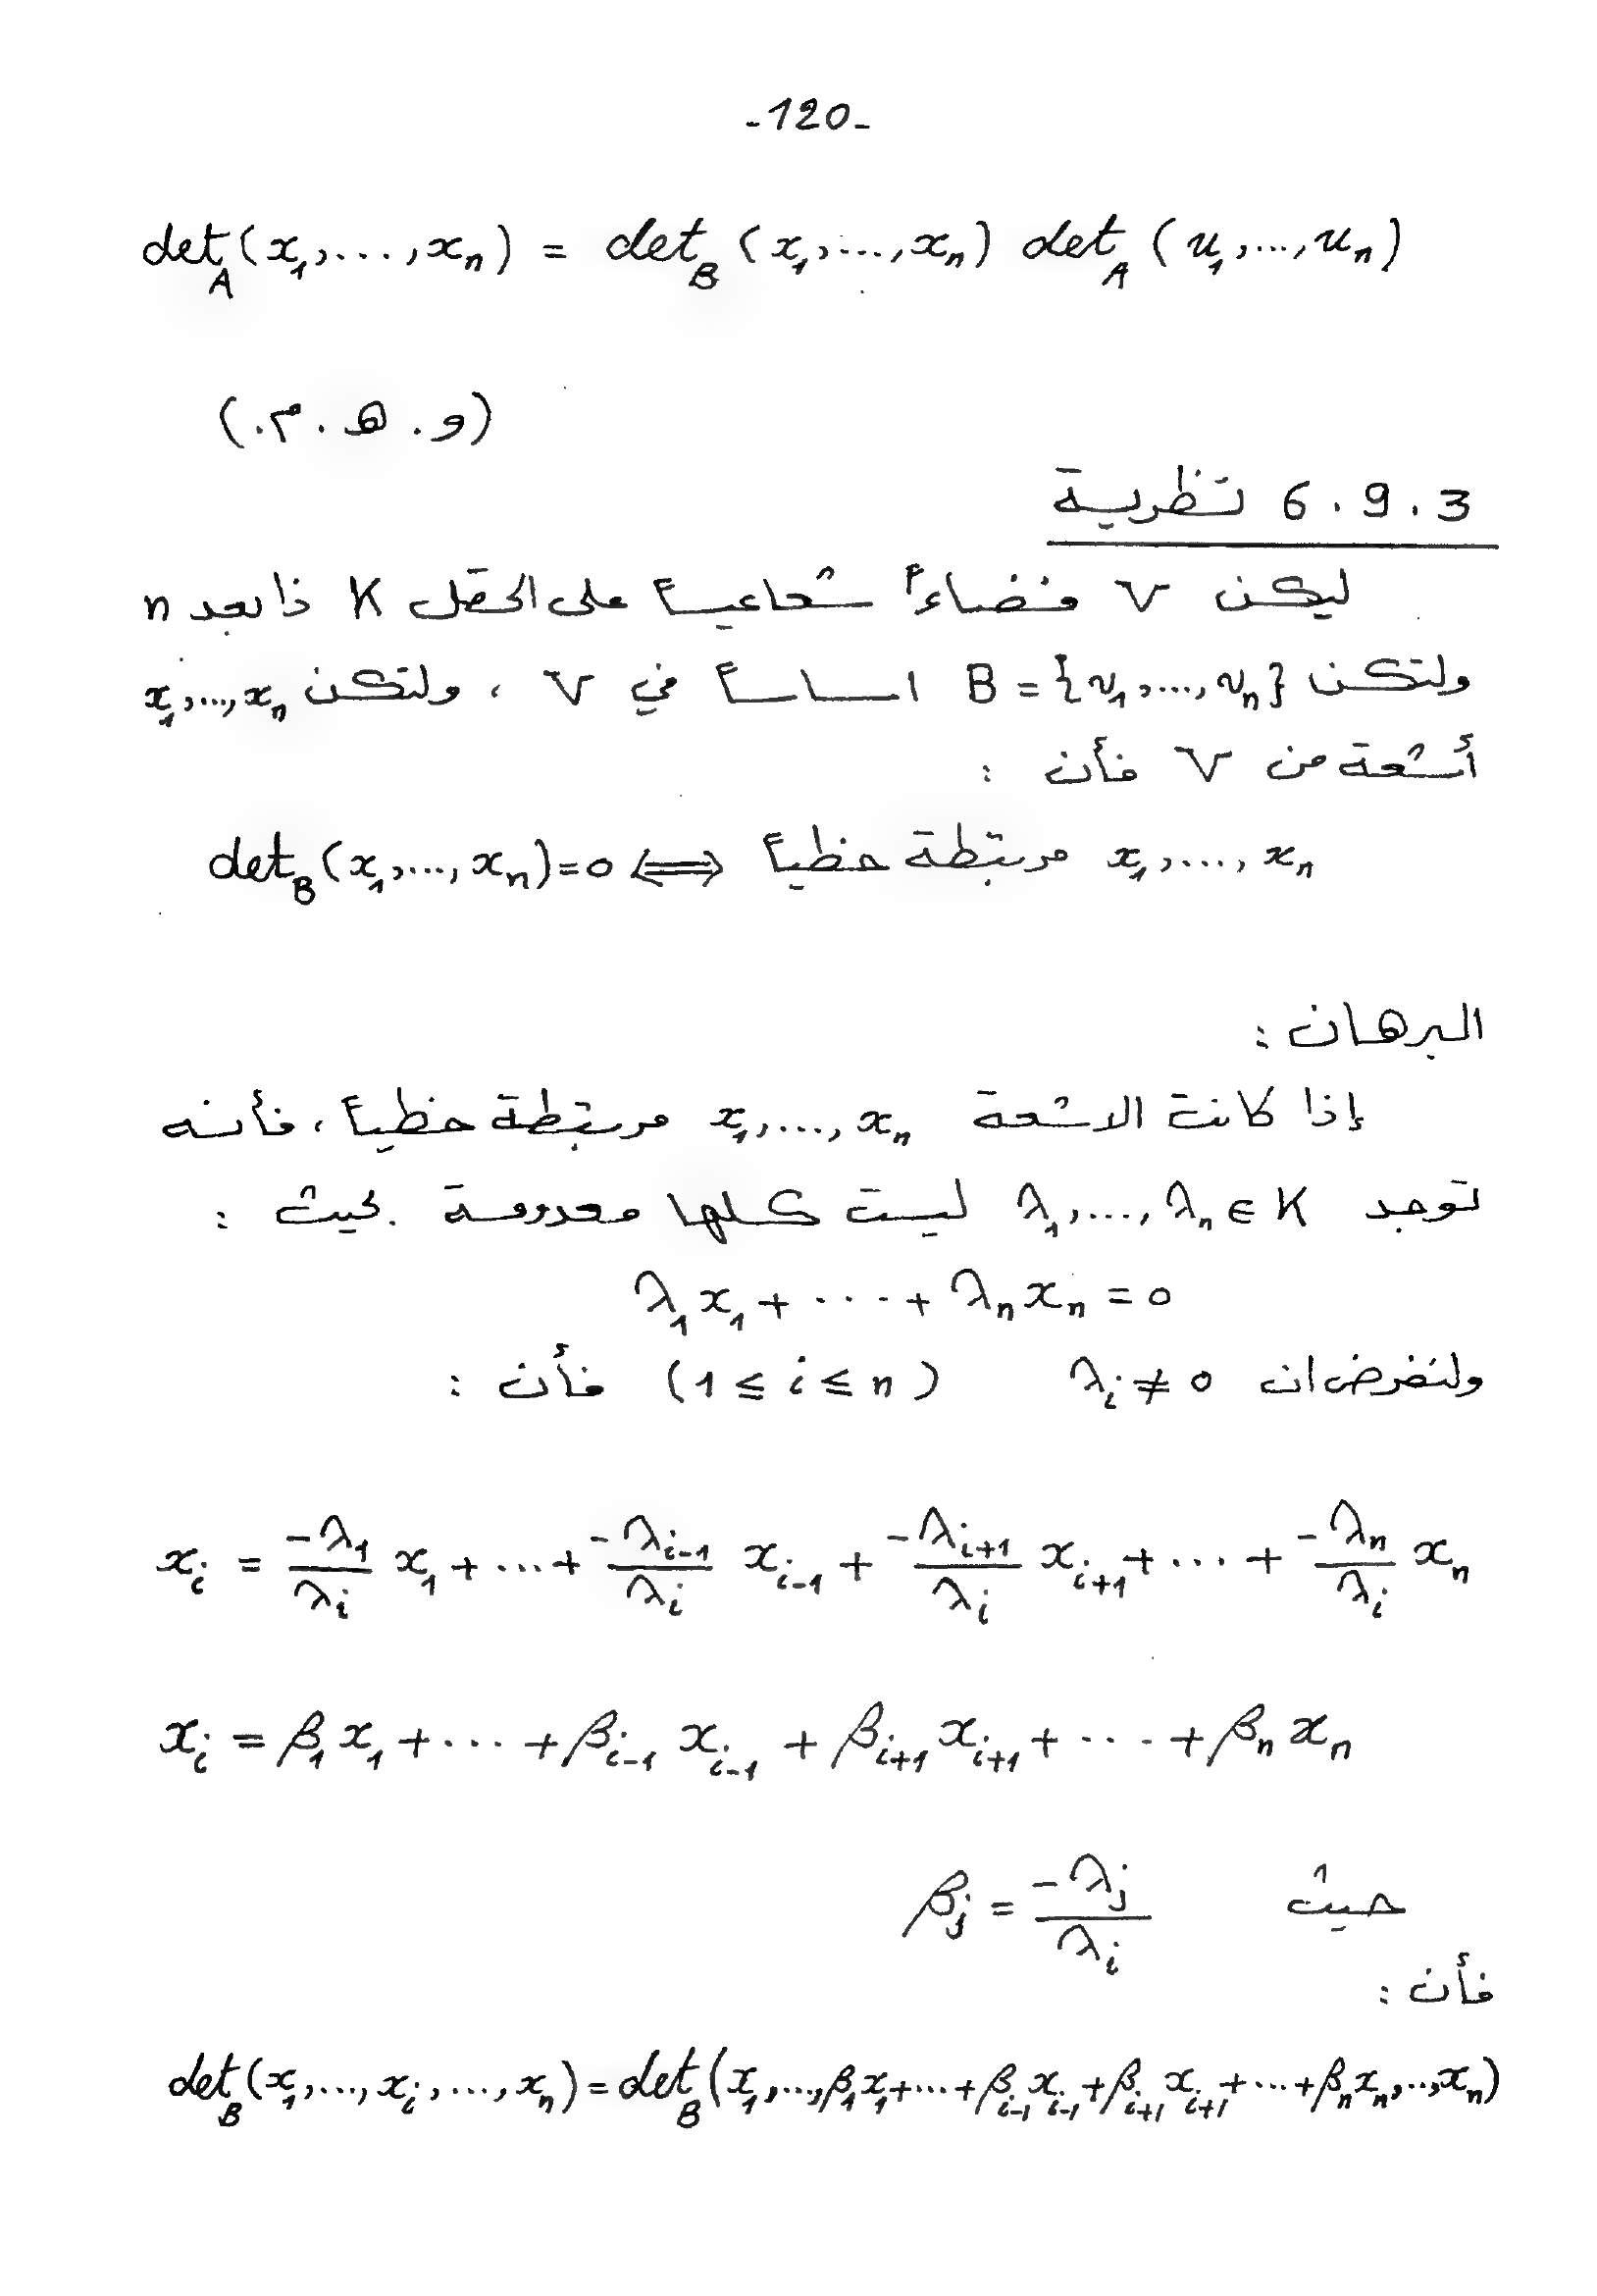 -120-
det_A(x_1,...,x_n) = det_B(x_1,...,x_n) det_A(u_1,...,u_n)
(و.ه.م.)
6.9.3 نظرية
ليكن V فضاءاً شعاعياً على الحقل K ذا بعد n
ولتكن B={v_1,...,v_n} اساساً في V ، ولتكن x_1,...,x_n
أشعة من V فأن :
x_1,...,x_n مرتبطة خطياً ⟺ det_B(x_1,...,x_n)=0
البرهان :
إذا كانت الاشعة x_1,...,x_n مرتبطة خطياً ، فأنه
توجد λ_1,...,λ_n ∈ K ليست كلها معدومة بحيث :
λ_1 x_1 + ··· + λ_n x_n = 0
ولنفرض ان λ_i ≠ 0 (1 ≤ i ≤ n) فأن :
x_i = (-λ_1/λ_i) x_1 + ... + (-λ_{i-1}/λ_i) x_{i-1} + (-λ_{i+1}/λ_i) x_{i+1} + ... + (-λ_n/λ_i) x_n
x_i = β_1 x_1 + ··· + β_{i-1} x_{i-1} + β_{i+1} x_{i+1} + ··· + β_n x_n
حيث β_j = -λ_j/λ_i
فأن :
det_B(x_1,...,x_i,...,x_n) = det_B(x_1,...,β_1 x_1+···+β_{i-1} x_{i-1}+β_{i+1} x_{i+1}+···+β_n x_n,...,x_n)